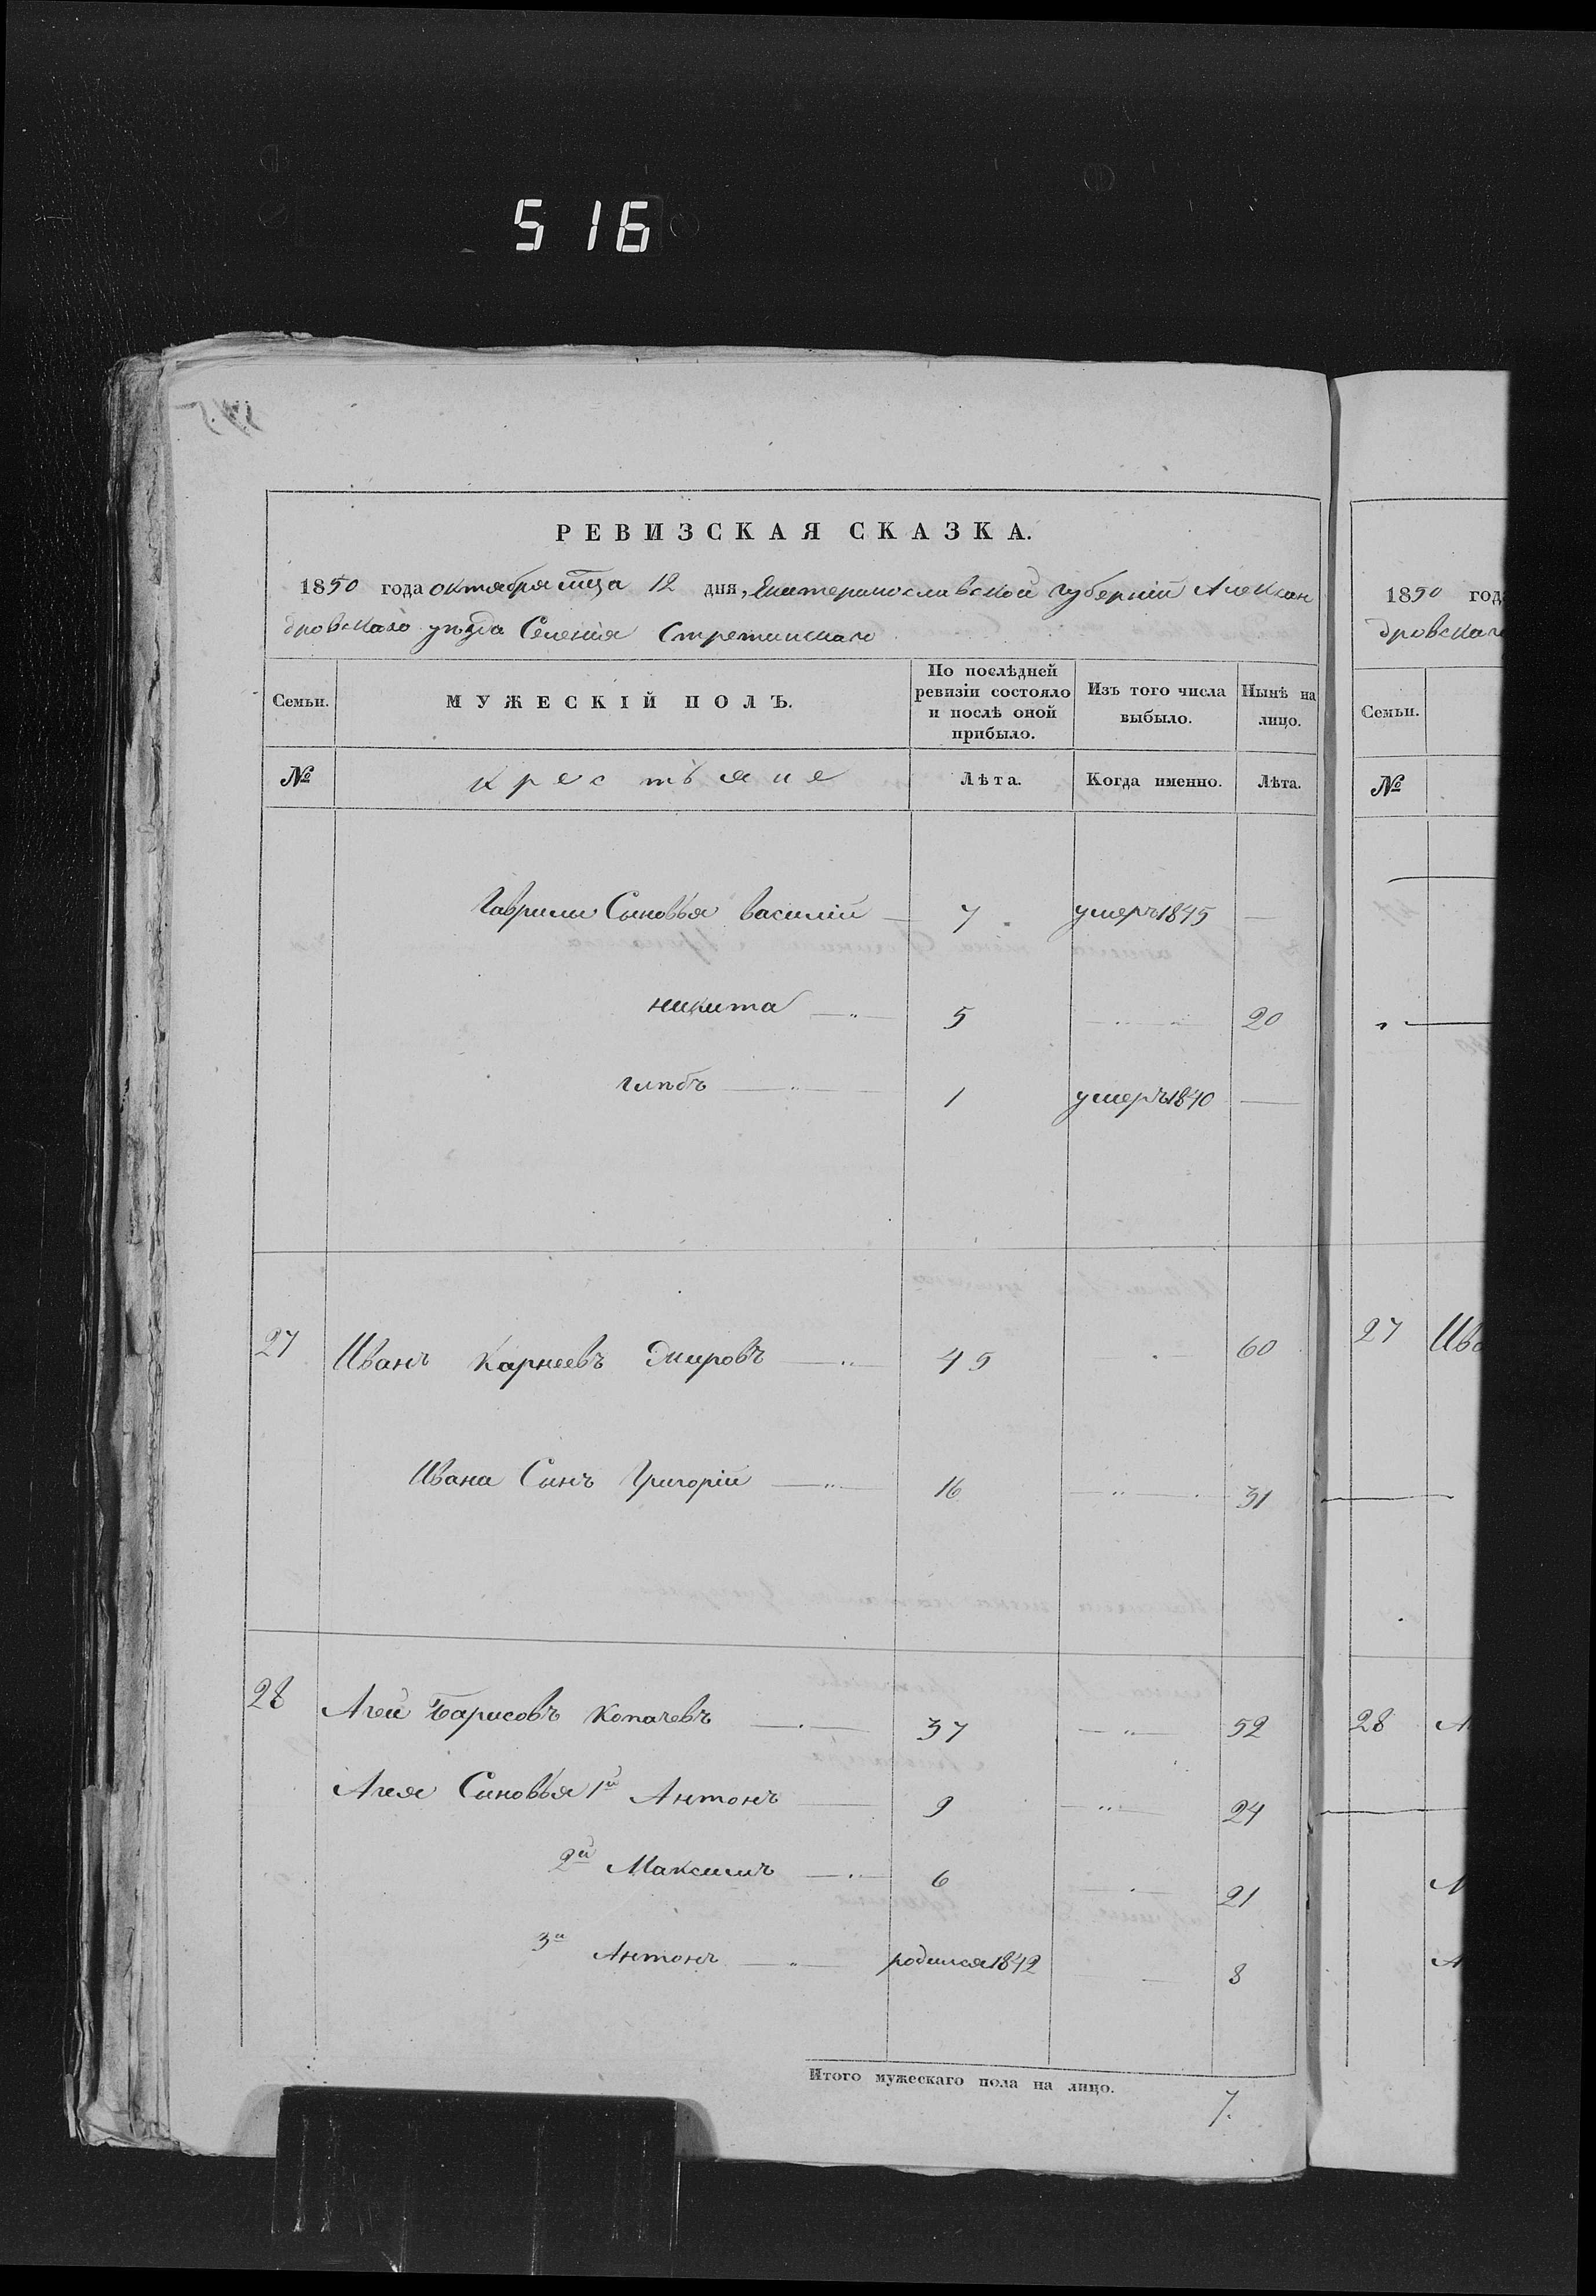 516
РЕВИЗСКАЯ СКАЗКА.
1850 года октября мца 12 дня, Екатеринославской губернии Алексан
дровскаго уезда Селения Стретинскаго
Семьи.
МУЖЕСКІЙ ПОЛЪ.
По послѣдней ревизіи состояло и послѣ оной прибыло.
Изъ того числа выбыло.
Нынѣ на лицо.
№ крестьяне Лѣта. Когда именно. Лѣта.
Гаврилы Сыновья василій 7 умеръ 1845
никита 5 20
глѣбъ 1 умеръ 1840
27 Иванъ Карнеевъ 45 60
Ивана Сынъ Григорій 16 31
28 Агей Барисовъ Копачевъ 37 52
Агея Сыновья 1й Антонъ 9 24
2й Максимъ 6 21
3й Антонъ родился 1842 8
Итого мужескаго пола на лицо.
7.
1850 год
дровскаго
Семьи.
№
27 Ива
28 А